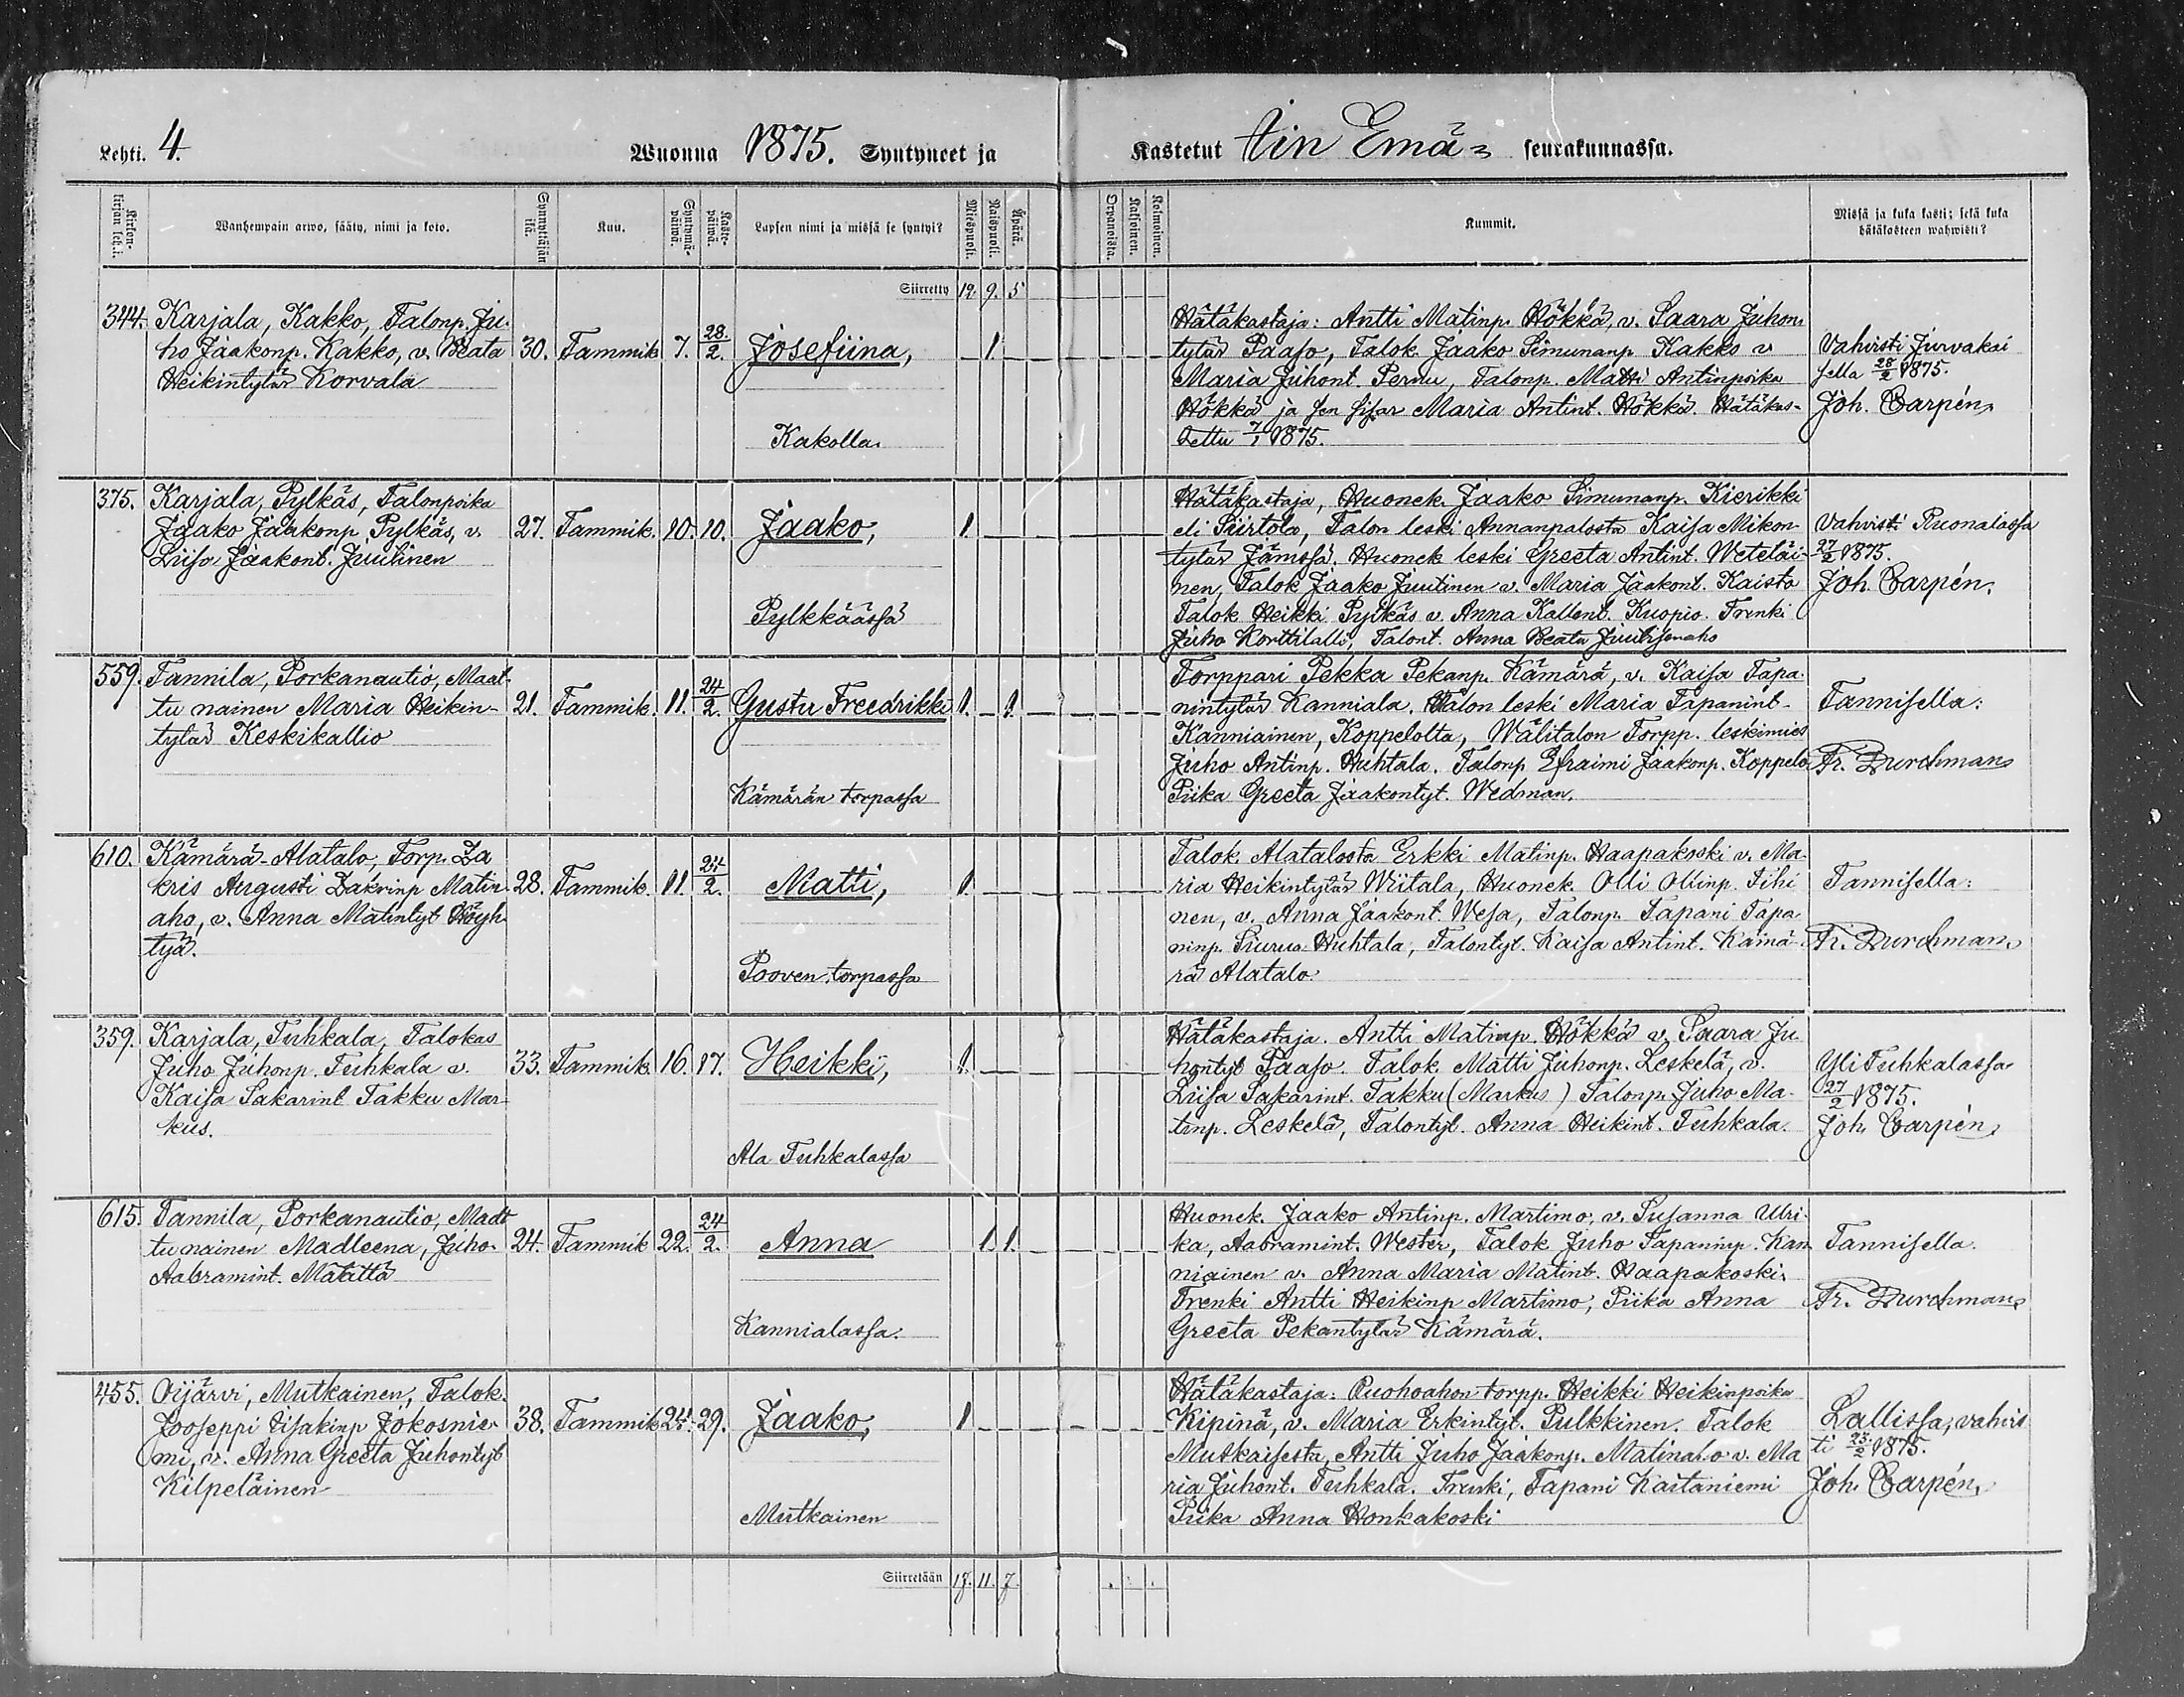 Lehti. 4. Wuonna 1875. Syntyneet ja Kastetut Iin Emä= seurakunnassa.
Kirkon-kirjan Wanhempain arwo, sääty, nimi ja koto. Synnyttäjän ikä. Kuu. Syntymä-päiwä. Kaste-päiwä. Lapsen nimi ja missä se syntyi? Miespuoli. Waispuoli. Äpärä. Kaksoinen. Kolmoinen. Kummit. Missä ja kuka kasti; sekä kuka hätäkasteen wahwisti?
Siirretty 12. 9. 5
344. Karjala, Kakko, Talonp. Ju-
ho Jaakonp. Kakko, v. Beata
Heikintytär Korvala
30. Tammik 7. 28/2. Josefiina, 1.
Kakolla.
Hätäkastaja: Antti Matinp. Hökkä, v. Saara Juhon-
tytär Paaso, Talok. Jaako Simunanp. Kakko v
Maria Juhont. Permu, Talonp. Matti Antinpoika
Hökkä ja sen sisar Maria Antint. Hökkä. Hätäkas-
tettu 7/1 1875.
Vahvisti Jurvakai
sella 28/2 1875.
Joh. Carpén.
375. Karjala, Pylkäs, Talonpoika
Jaako Jaakonp. Pylkäs, v.
Liisa Jaakont. Juutinen
27. Tammik. 10. 10. Jaako, 1.
Pylkkäässä
Hätäkastaja, Huonek. Jaako Simunanp. Kierikki
eli Siirtola, Talon leski Annanpalosta Kaisa Mikon-
tytär Jämssä, Huonek leski Greeta Antint. Weteläi-
nen, Talok Jaako Juutinen v. Maria Jaakont. Kaisto
Talok Heikki Pylkäs v Anna Kallent. Kuopio. Trenki
Juho Korttilalta, Talont. Anna Beata Juutisenaho
Vahvisti Ruonalassa
27/2 1875.
Joh. Carpén.
559. Tannila, Porkanautio, Maat-
tu nainen Maria Heikin-
tytär Keskikallio
21. Tammik. 11. 24/2. Gustu Freedrikki 1. 1.
Kämärän torpassa
Torppari Pekka Pekanp. Kämärä, v. Kaisa Tapa-
nintytär Kanniala. Talon leski Maria Tapanint-
Kanniainen, Koppelolta, Wälitalon Torpp. leskimies
Juho Antinp. Huhtala. Talonp Efraimi Jaakonp. Koppelo
Piika Greeta Jaakontyt. Wedman.
Tannisella:
Fr. Durchman
610. Kämärä-Alatalo, Torp. Za
kris Augusti Zakrinp Matin
aho, v. Anna Matintyt Höyh
tyä.
28. Tammik. 11. 24/2. Matti, 1.
Pooven torpassa
Talok. Alatalosta Erkki Matinp. Haapakoski v. Ma-
ria Heikintytär Wiitala, Huonek. Olli Ollinp. Tihi
nen, v. Anna Jaakont. Wesa, Talonp. Tapani Tapa
ninp. Siurua-Huhtala, Talontyt. Kaisa Antint. Kämä-
rä Alatalo.
Tannisella:
Fr. Durchman
359. Karjala, Tuhkala, Talokas
Juho Juhonp. Tuhkala v.
Kaisa Sakarint Takku Mar-
kus.
33. Tammik. 16. 17. Heikki, 1.
Ala Tuhkalassa
Hätäkastaja. Antti Matinp. Hökkä v. Saara Ju
hontyt Paaso. Talok. Matti Juhonp. Leskelä, v.
Liisa Sakarint. Takku (Markus) Talonp. Juho Ma-
tinp. Leskelä, Talontyt. Anna Heikint. Tuhkala.
Yli Tuhkalassa
27/2 1875.
Joh. Carpén.
615. Tannila, Porkanautio, Maat
tu nainen Madleena, Juho-
Aabramint. Määttä
24. Tammik 22. 24/2. Anna 1. 1.
Kannialassa.
Huonek. Jaako Antinp. Martimo, v. Susanna Ulri-
ka, Aabramint. Wester, Talok Juho Tapaninp. Kan
niainen v. Anna Maria Matint. Haapakoski.
Trenki Antti Heikinp Martimo, Piika Anna
Greeta Pekantytär Kämärä.
Tannisella.
Fr. Durchman
455. Oijärvi, Mutkainen, Talok.
Jooseppi Iisakinp Jokosnie-
mi, v. Anna Greeta Juhontyt
Kilpeläinen
38. Tammik 24. 29. Jaako, 1
Mutkainen
Hätäkastaja: Ruohoahon torpp. Heikki Heikinpoika
Kipinä, v. Maria Erkintyt. Pulkkinen. Talok
Mutkaisesta, Antti Juho Jaakonp. Matinaho v. Ma
ria Juhont. Tuhkala. Trenki, Tapani Kastaniemi
Piika Anna Honkakoski
Lallissa, vahvis
ti 23/2 1875.
Joh. Carpén.
Siirretään 17. 11. 7.